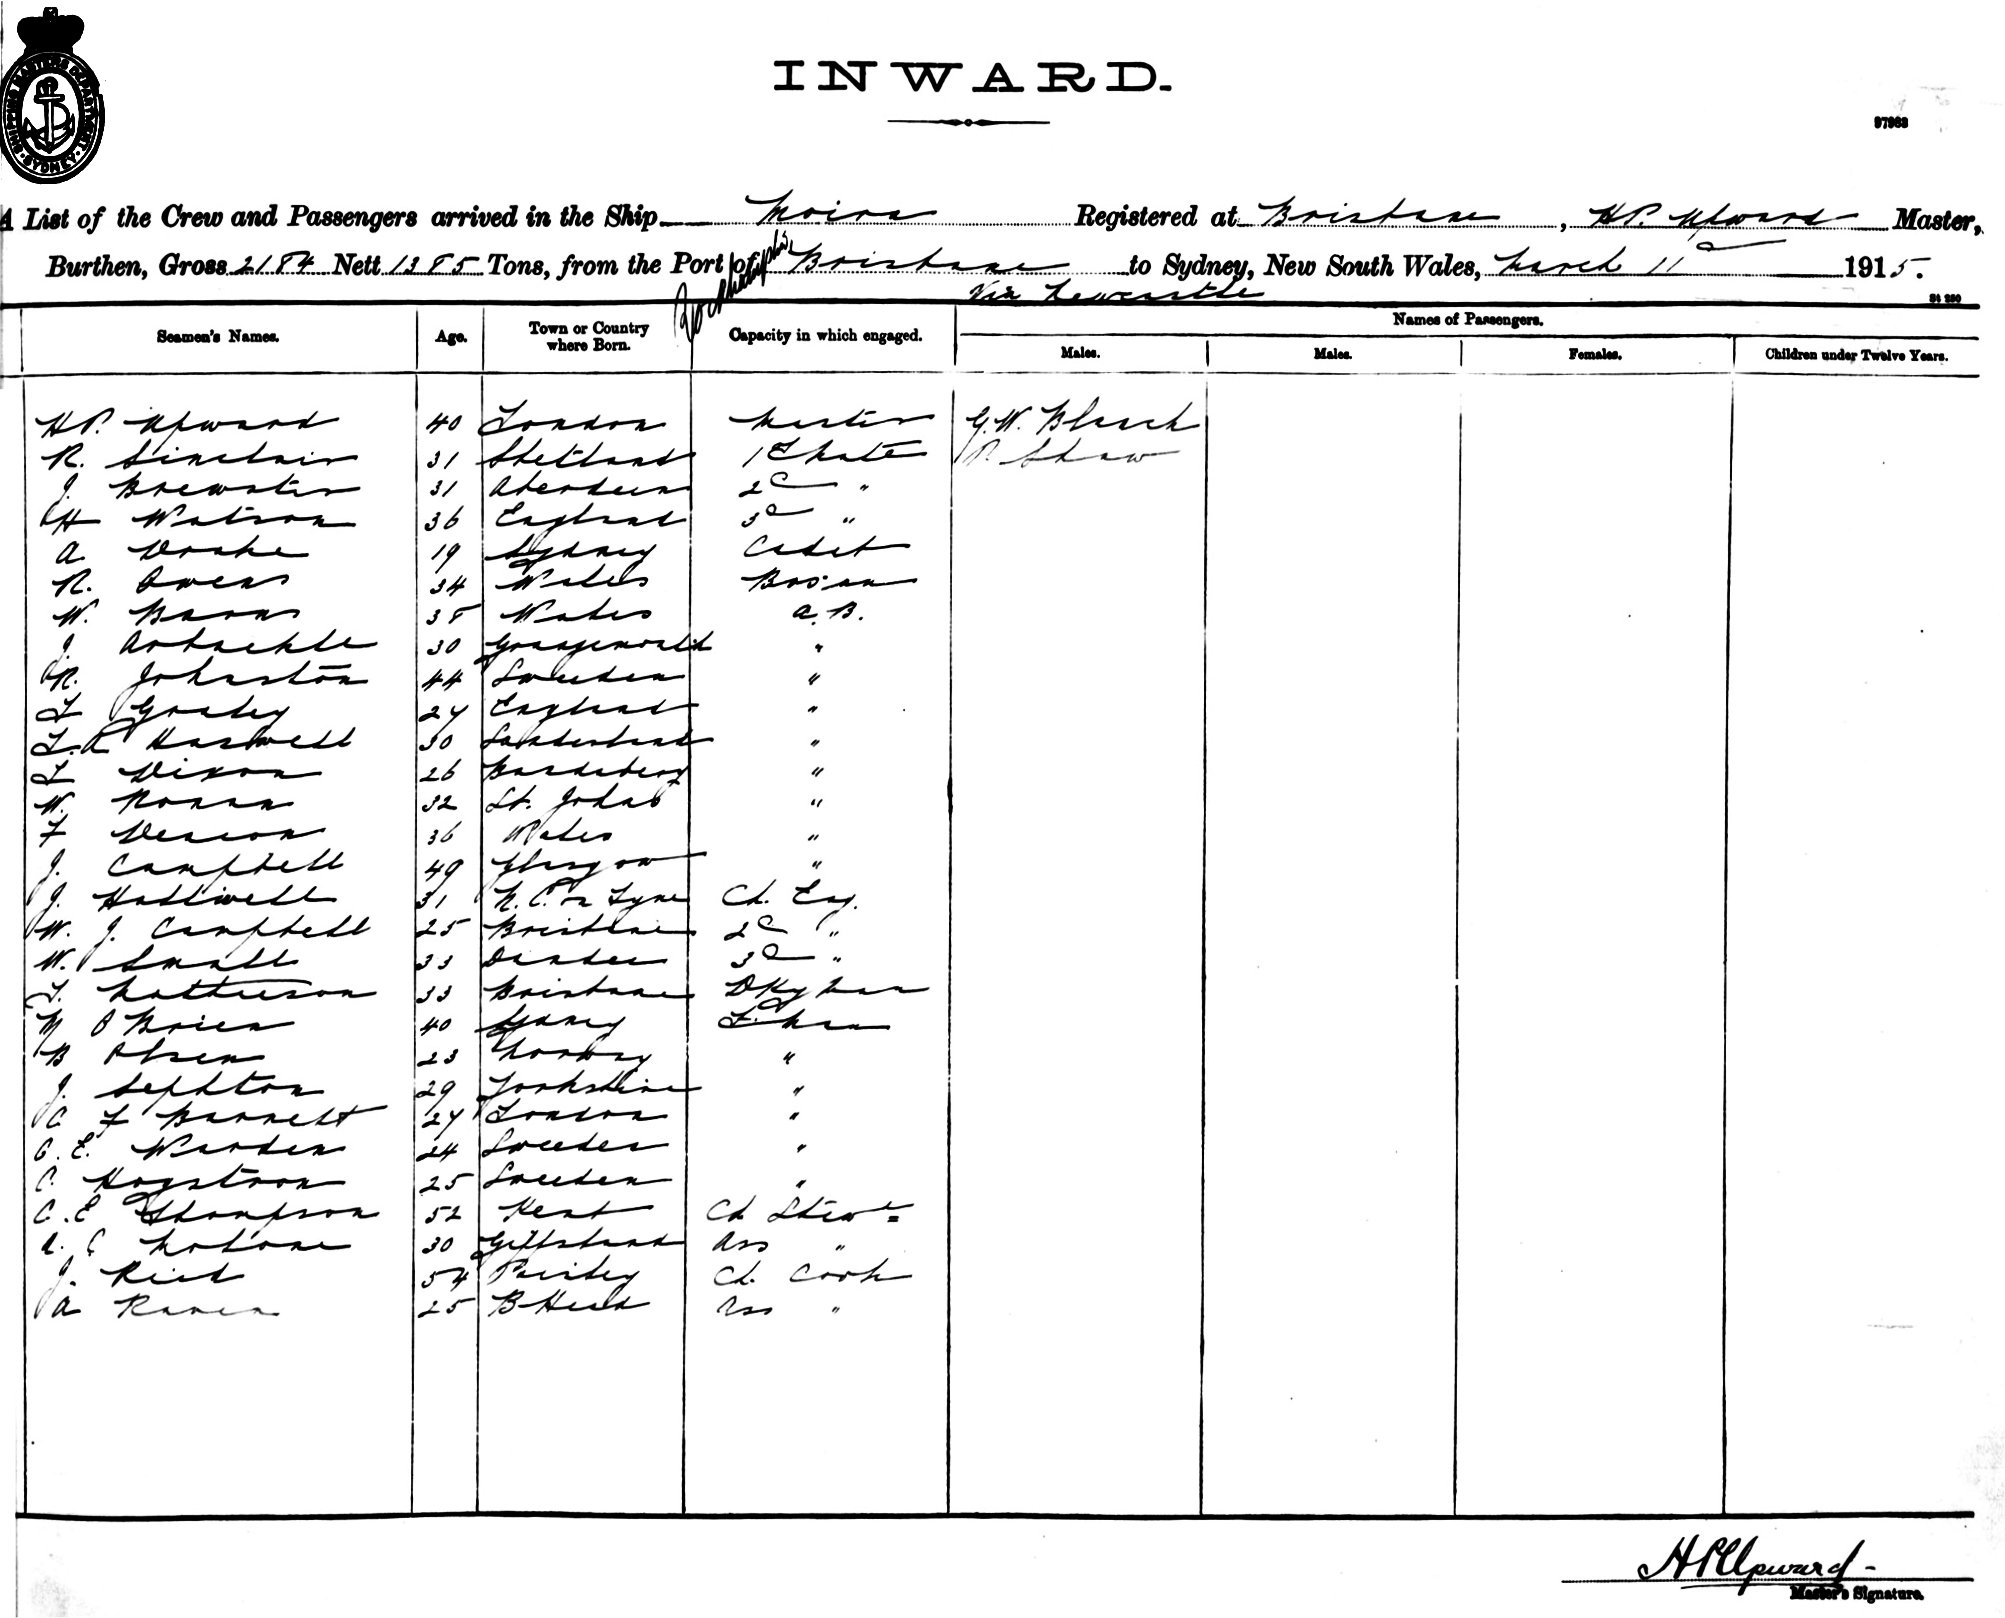 SHIPPING MASTERS DEPARTMENT
SYDNEY
INWARD.
97983
A List of the Crew and Passengers arrived in the Ship Moira Registered at Brisbane, H.P. Upward Master,
Burthen, Gross 2184 Nett 1385 Tons, from the Port of Rockhampton Brisbane to Sydney, New South Wales, March 11 1915.
Via Newcastle
St 230
Seamen's Names. Age. Town or Country where Born. Capacity in which engaged. Names of Passengers.
Males. Males. Females. Children under Twelve Years.
H P. Upward 40 London Master G. W. Black
R. Sinclair 31 Shetland 1st Mate R Shaw
J. Brewster 31 Aberdeen 2d "
H Watson 36 England 3d "
A Drake 19 Sydney Cadet
R. Owens 34 Wales Bosun
W. Barns 38 Wales A.B.
J. Arbuckle 30 "
R. Johnston 44 Sweden "
T 27 England "
T. A Haswell 30 Sunderland "
T Dixon 26 Bundaberg "
W. Ronan 32 St. Johns "
F Deacon 36 Wales "
J. Campbell 49 Glasgow "
J. Halliwell 31 N. C. on Tyne Ch. Eng.
W. J. Campbell 25 Brisbane 2d "
W. Small 33 Dundee 3d "
T. Mathieson 33 Brisbane Dky Man
M O'Brien 40 Sydney F. man
B Olsen 23 Norway "
J. Sephton 29 Yorkshire "
C F Barnett 27 London "
C. E. Warden 24 Sweden "
C. Hogstrom 25 Sweden "
C. E Thompson 52 Kent Ch Stewd
A. C Malone 30 Gippsland Ass "
J. Reid 54 Paisley Ch. Cook
A Raven 25 B Head Ass "
H P Upward
Master's Signature.